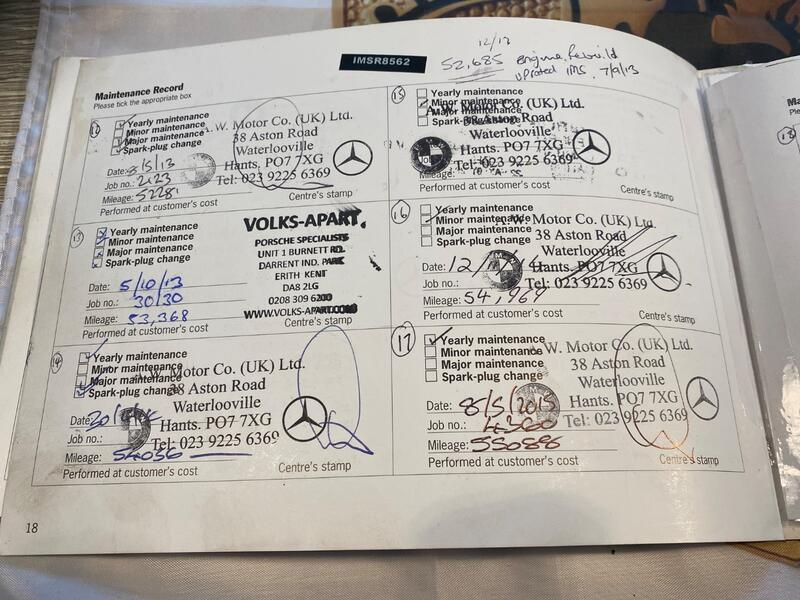 IMSR8562
12/13
52,685 engine Rebuild
uprated IMS. 7/9/13
Maintenance Record
Please tick the appropriate box
Yearly maintenance
Minor maintenance
Major maintenance
Spark-plug change
A.W. Motor Co. (UK) Ltd.
38 Aston Road
Waterlooville
Hants. PO7 7XG
Tel: 023 9225 6369
Date: 8/5/13
Job no.: 2123
Mileage: 52281
Performed at customer's cost
Centre's stamp
13
Yearly maintenance
Minor maintenance
Major maintenance
Spark-plug change
VOLKS-APART.
PORSCHE SPECIALISTS
UNIT 1 BURNETT RD.
DARRENT IND. PARK
ERITH KENT
DA8 2LG
0208 309 6200
WWW.VOLKS-APART.COM
Date: 5/10/13
Job no.: 30130
Mileage: 53,368
Performed at customer's cost
Centre's stamp
14
Yearly maintenance
Minor maintenance
Major maintenance
Spark-plug change
A.W. Motor Co. (UK) Ltd.
38 Aston Road
Waterlooville
Hants. PO7 7XG
Tel: 023 9225 6369
Date:
Job no.:
Mileage: 54056
Performed at customer's cost
Centre's stamp
15
Yearly maintenance
Minor maintenance
Major maintenance
Spark-plug change
A.W. Motor Co. (UK) Ltd.
38 Aston Road
Waterlooville
Hants. PO7 7XG
Tel: 023 9225 6369
Job
Mileage:
Performed at customer's cost
Centre's stamp
16
Yearly maintenance
Minor maintenance
Major maintenance
Spark-plug change
A.W. Motor Co. (UK) Ltd.
38 Aston Road
Waterlooville
Hants. PO7 7XG
Tel: 023 9225 6369
Date:
Job no.:
Mileage: 54,969
Performed at customer's cost
Centre's stamp
17
Yearly maintenance
Minor maintenance
Major maintenance
Spark-plug change
A.W. Motor Co. (UK) Ltd.
38 Aston Road
Waterlooville
Hants. PO7 7XG
Tel: 023 9225 6369
Date: 8/5/2015
Job no.: 4360
Mileage: 55088
Performed at customer's cost
Centre's stamp
18